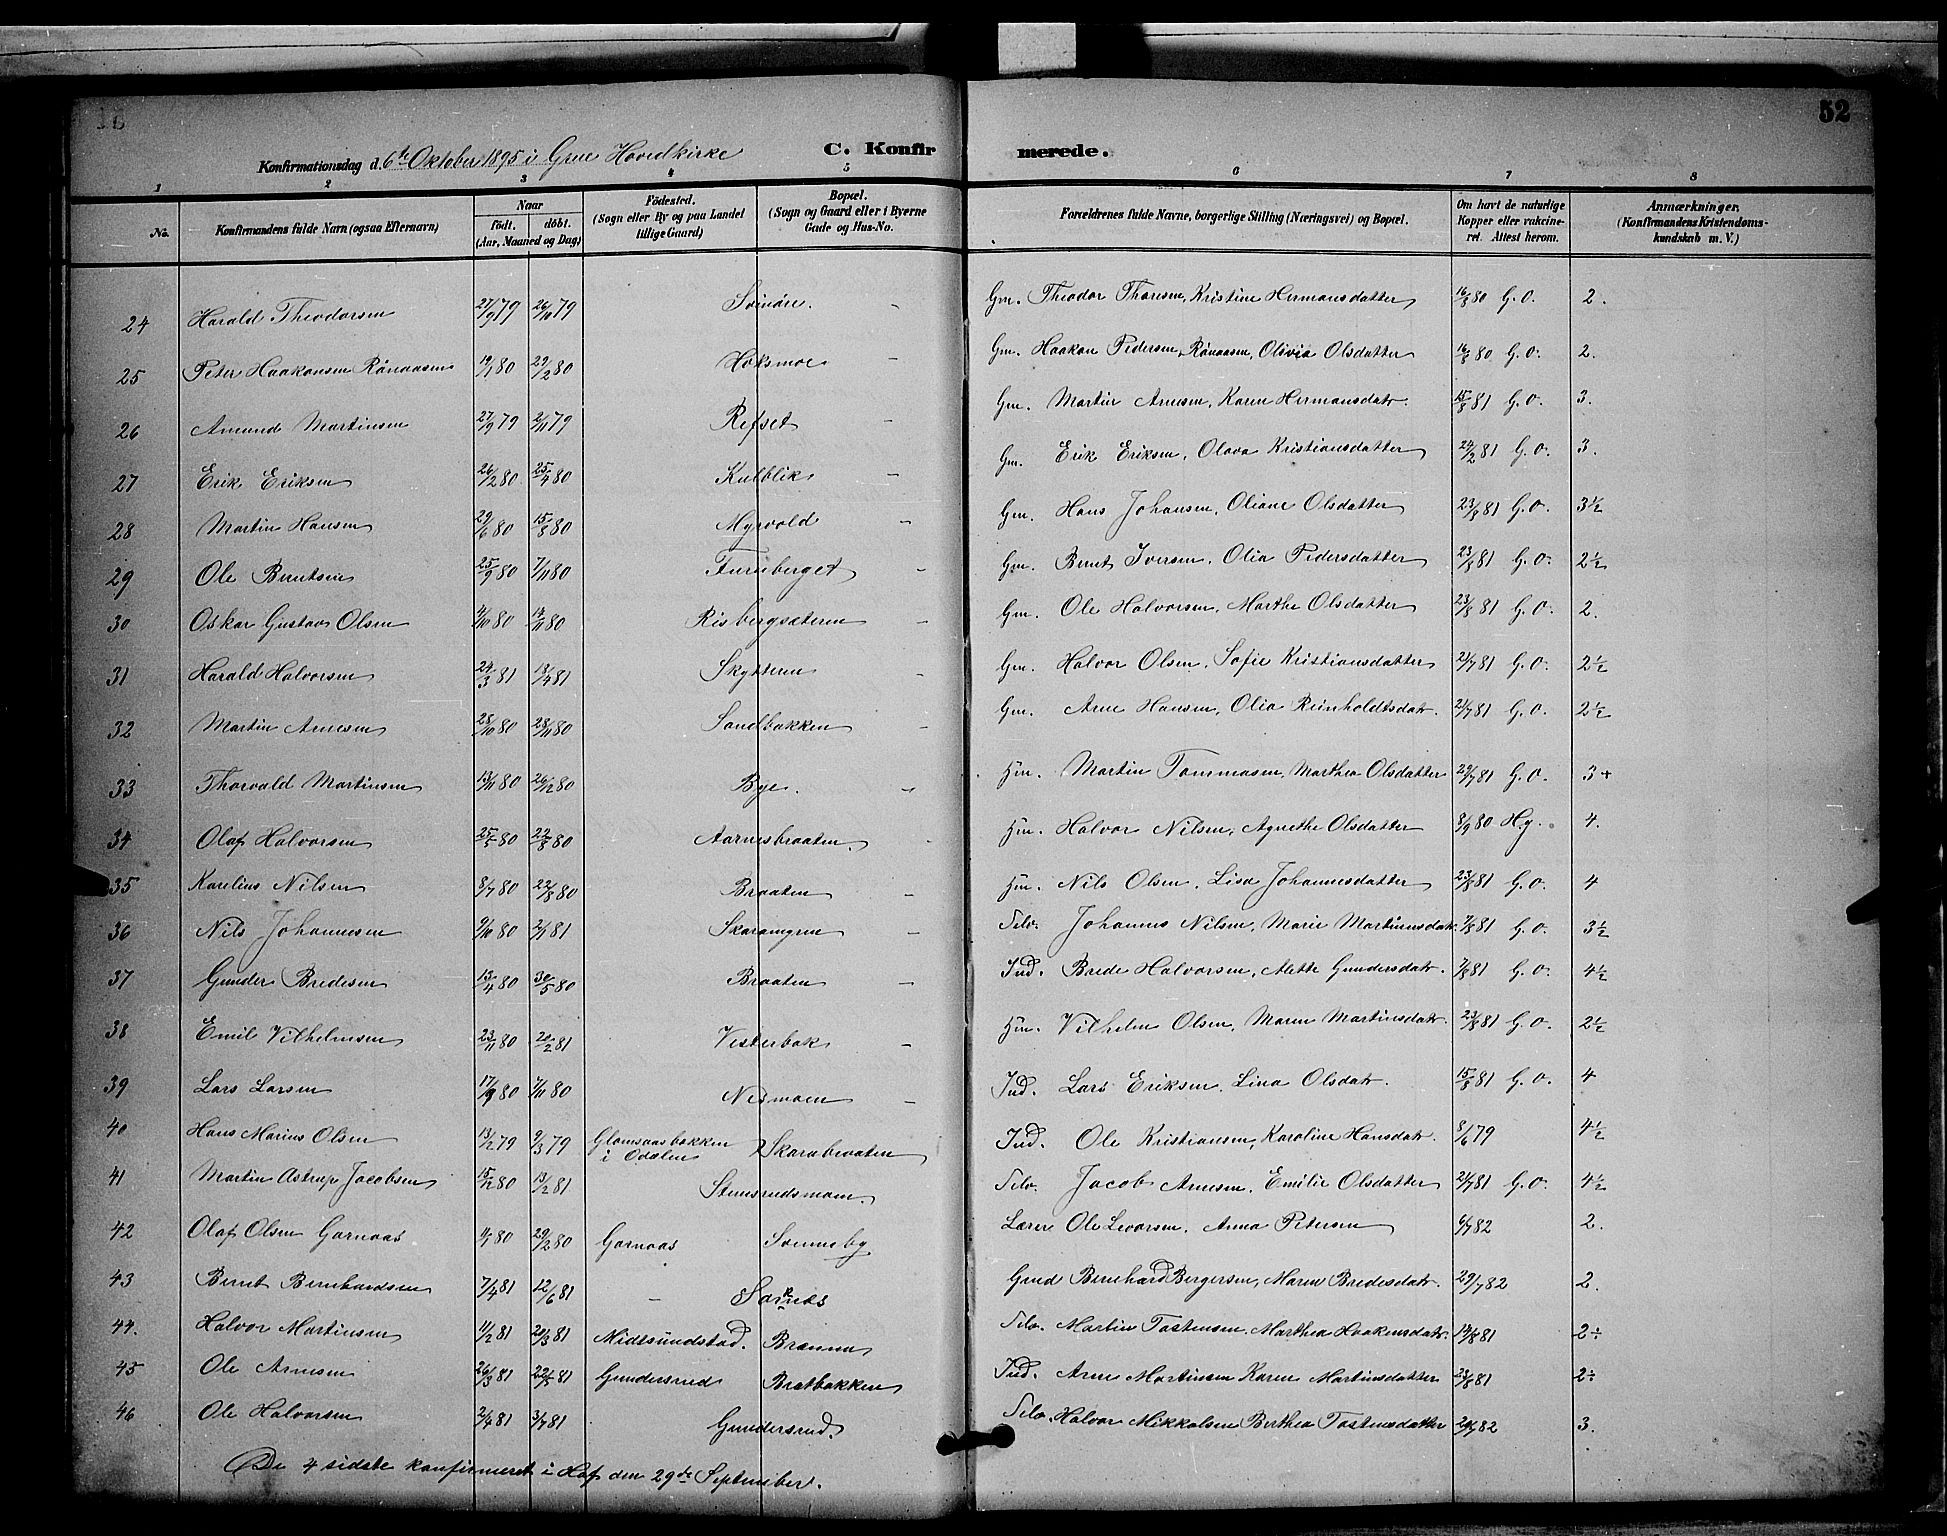 52
Konfirmationsdag d. 6te Oktober 1895 i Grue Hovedkirke C. Konfirmerede.
1 2 3 4 5 6 7 8
No. Konfirmandens fulde Navn (ogsaa Efternavn) Naar født. døbt. (Aar, Maaned og Dag) Fødested. (Sogn eller By og paa Landet tillige Gaard) Bopæl. (Sogn og Gaard eller i Byerne Gade og Hus-No. Forældrenes fulde Navne, borgerlige Stilling (Næringsvei) og Bopæl. Om havt de naturlige Kopper eller vakcineret. Attest herom. Anmærkninger. (Konfirmandens Kristendomskundskab m. V.)
24 Harald Theodorsen 27/9 79 26/10 79 Svinöre. - Gm. Theodor Thoresen, Kristine Hermansdatter 16/8 80 G.O. 2.
25 Peter Haakonsen Rönaasen 19/1 80 29/2 80 Hoksmoe - Gm. Haakon Pedersen Rönaasen, Olivia Olsdatter 16/8 80 G.O. 2.
26 Amund Martinsen 27/9 79 2/11 79 Refset - Gm. Martin Arnesen, Karen Hermansdatr. 15/8 81 G.O. 3.
27 Erik Eriksen 26/2 80 25/4 80 Kulblik - Gm. Erik Eriksen, Olava Kristiansdatter 24/2 81 G.O. 3.
28 Martin Hansen 29/6 80 15/8 80 Myrvold - Gm. Hans Johansen, Oliane Olsdatter 23/8 81 G.O. 3½
29 Ole Berntsen 25/9 80 7/11 80 Furuberget - Gm. Bernt Iversen, Olia Pedersdatter 23/8 81 G.O. 2½
30 Oskar Gustav Olsen 4/10 80 14/11 80 Risbergsæteren - Gm. Ole Halvorsen, Marthe Olsdatter 23/8 81 G.O. 2.
31 Harald Halvorsen 24/3 81 18/4 81 Skytteren - Gm. Halvor Olsen, Sofie Kristiansdatter 21/7 81 G.O. 2½
32 Martin Arnesen 28/10 80 28/11 80 Sandbakken - Gm. Arne Hansen, Olia Reinholdtsdatr. 21/7 81 G.O. 2½
33 Thorvald Martinsen 13/11 80 26/12 80 Bye. - Hm. Martin Tommasen, Marthea Olsdatter 29/7 81 G.O. 3+
34 Olaf Halvorsen 25/5 80 22/8 80 Aarnesbraaten. Hm. Halvor Nilsen, Agnethe Olsdatter 8/9 80 Hg. 4.
35 Karelius Nilsen 8/7 80 22/8 80 Braaten - Hm. Nils Olsen, Lisa Johannesdatter 23/8 81 G.O. 4
36 Nils Johannesen 9/10 80 2/1 81 Skaramyren - Selv. Johannes Nilsen, Marie Martinusdatr. 7/8 81 G.O. 3½
37 Gunder Bredesen 13/4 80 30/5 80 Braaten - Ind. Brede Halvorsen, Mette Gundersdatr. 7/8 81 G.O. 4½
38 Emil Vilhelmsen 23/11 80 20/2 81 Vesterbak - Hm. Vilhelm Olsen, Maren Martinsdatr. 23/8 81 G.O. 2½
39 Lars Larsen 17/9 80 7/11 80 Nesmoen - Ind. Lars Eriksen, Lina Olsdatr. 15/8 81 G.O. 4
40 Hans Marius Olsen 13/2 79 9/3 79 Glomsaasbakken i Odalen Skarabraaten Ind. Ole Kristiansen, Karoline Hansdatr. 8/6 79 4½
41 Martin Astrup Jacobsen 15/12 80 13/2 81 Stensrudsmoen. Selv. Jacob Arnesen, Emilie Olsdatter 21/7 81 G.O. 4½
42 Olaf Olsen Garnaas 1/1 80 29/2 80 Garnaas Svenneby Lærer Ole Levorsen, Anna Petersen 6/7 82 2.
43 Bernt Bernhardsen 7/4 81 12/6 81 - Gmd Bernhard Bergersen, Maren Bredesdatr. 29/7 82 2.
44. Halvor Martinsen 11/2 81 20/3 81 Midtsundstad. Brænna Selv. Martin Tostensen, Marthea Haakensdatr. 19/8 81 2÷
45 Ole Arnesen 26/3 81 22/5 81 Gundersrud Bratbakken Ind. Arne Martinsen Karen Martinsdatter 23/8 81 2÷
46 Ole Halvorsen 2/4 81 3/7 81 Gundersrud. Selv. Halvor Mikkelsen Berthea Tostensdatter 29/7 82 3.
De 4 sidste konfirmeret i Hof den 29de September.